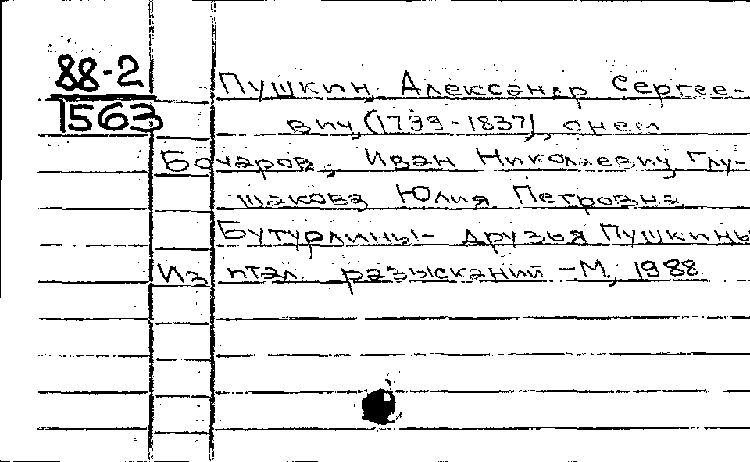 88-2
1563
Пушкин, Александр Сергее-
вич, (1799-1837), о нем
Бочаров, Иван Николаевич, Глу-
шакова, Юлия Петровна
Бутурлины - друзья Пушкины
Из итал. разысканий - М, 1988